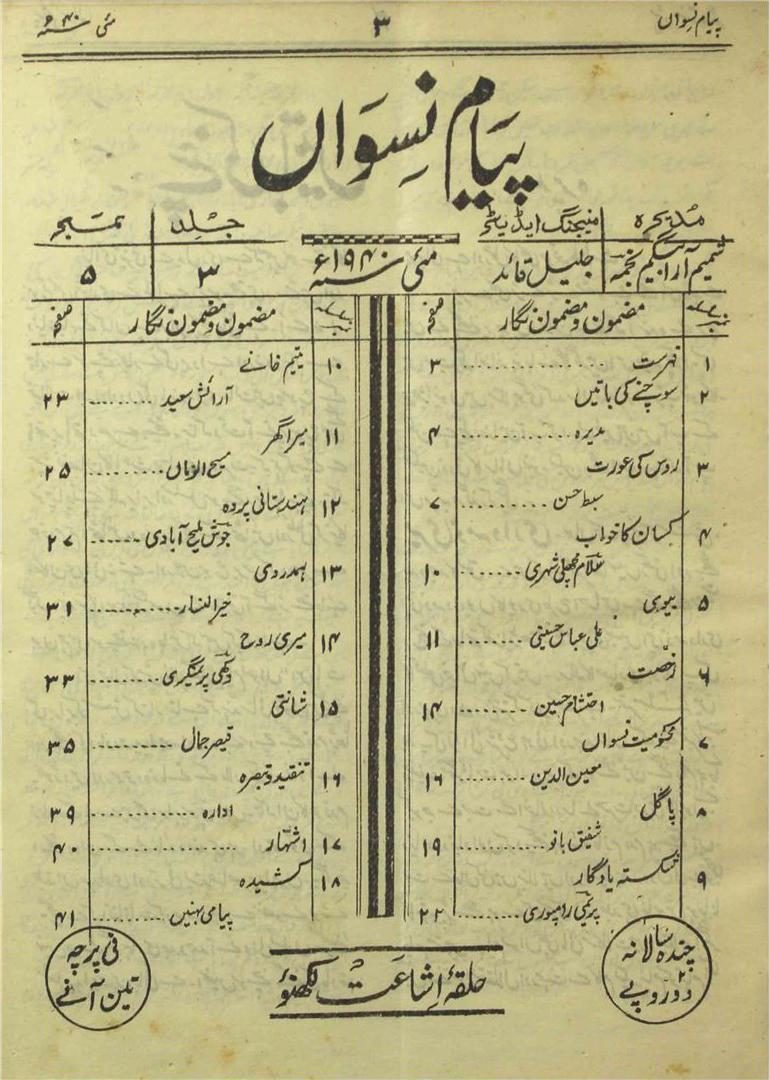 پیام نسواں ۳ مئی سنہ ۴۰ء
پیام نسواں
مدیرہ
شمیم آرا بیگم نجمہ
منیجنگ ایڈیٹر
جلیل قائد
مئی سنہ ۱۹۴۰ء
جلد
۳
نمبر
۵
نمبر مضمون و مضمون نگار صفحہ
۱ فہرست ............ ۳
۲ سوچنے کی باتیں
مدیرہ ............ ۴
۳ روس کی عورت
سبط حسن ........ ۷
۴ کسان کا خواب
غلام مچھلی شہری ........ ۱۰
۵ بیوی
علی عباس حسینی ........ ۱۱
۶ رخصت
احتشام حسین ........ ۱۴
۷ محکومیت نسواں
معین الدین ........ ۱۶
۸ پاگل
شفیق بانو ........ ۱۹
۹ شکستہ یادگار
پریمی رامپوری ........ ۲۲
نمبر مضمون و مضمون نگار صفحہ
۱۰ یتیم خانے
آرائش سعید ........ ۲۳
۱۱ میرا گھر
مسیح الزماں ........ ۲۵
۱۲ ہندستانی پردہ
جوش ملیح آبادی ...... ۲۷
۱۳ ہمدردی
خیر النساء ........ ۳۱
۱۴ میری روح
دکھی پریم نگری ........ ۳۳
۱۵ شانتی
قیصر جمال ........ ۳۵
۱۶ تنقید و تبصرہ
ادارہ ............ ۳۹
۱۷ اشتہار ............ ۴۰
۱۸ کشیدہ
پیامی بہنیں ........ ۴۱
چندہ سالانہ
دو روپے ۲
حلقۂ اشاعت لکھنؤ
فی پرچہ
تین آنے